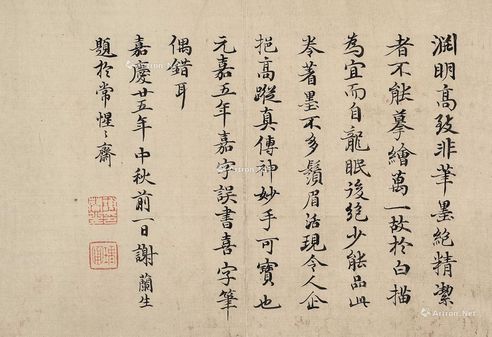 淵明高致非筆墨絕精潔
者不能摹繪萬一故於白描
為宜而自龍眠後絕少能品此
卷著墨不多鬚眉活現令人企
挹高蹤真傳神妙手可寶也
元嘉五年嘉字誤書喜字筆
偶錯耳
嘉慶廿五年中秋前一日謝蘭生
題於常惺〻齋
Artron.Net
Artron.Net